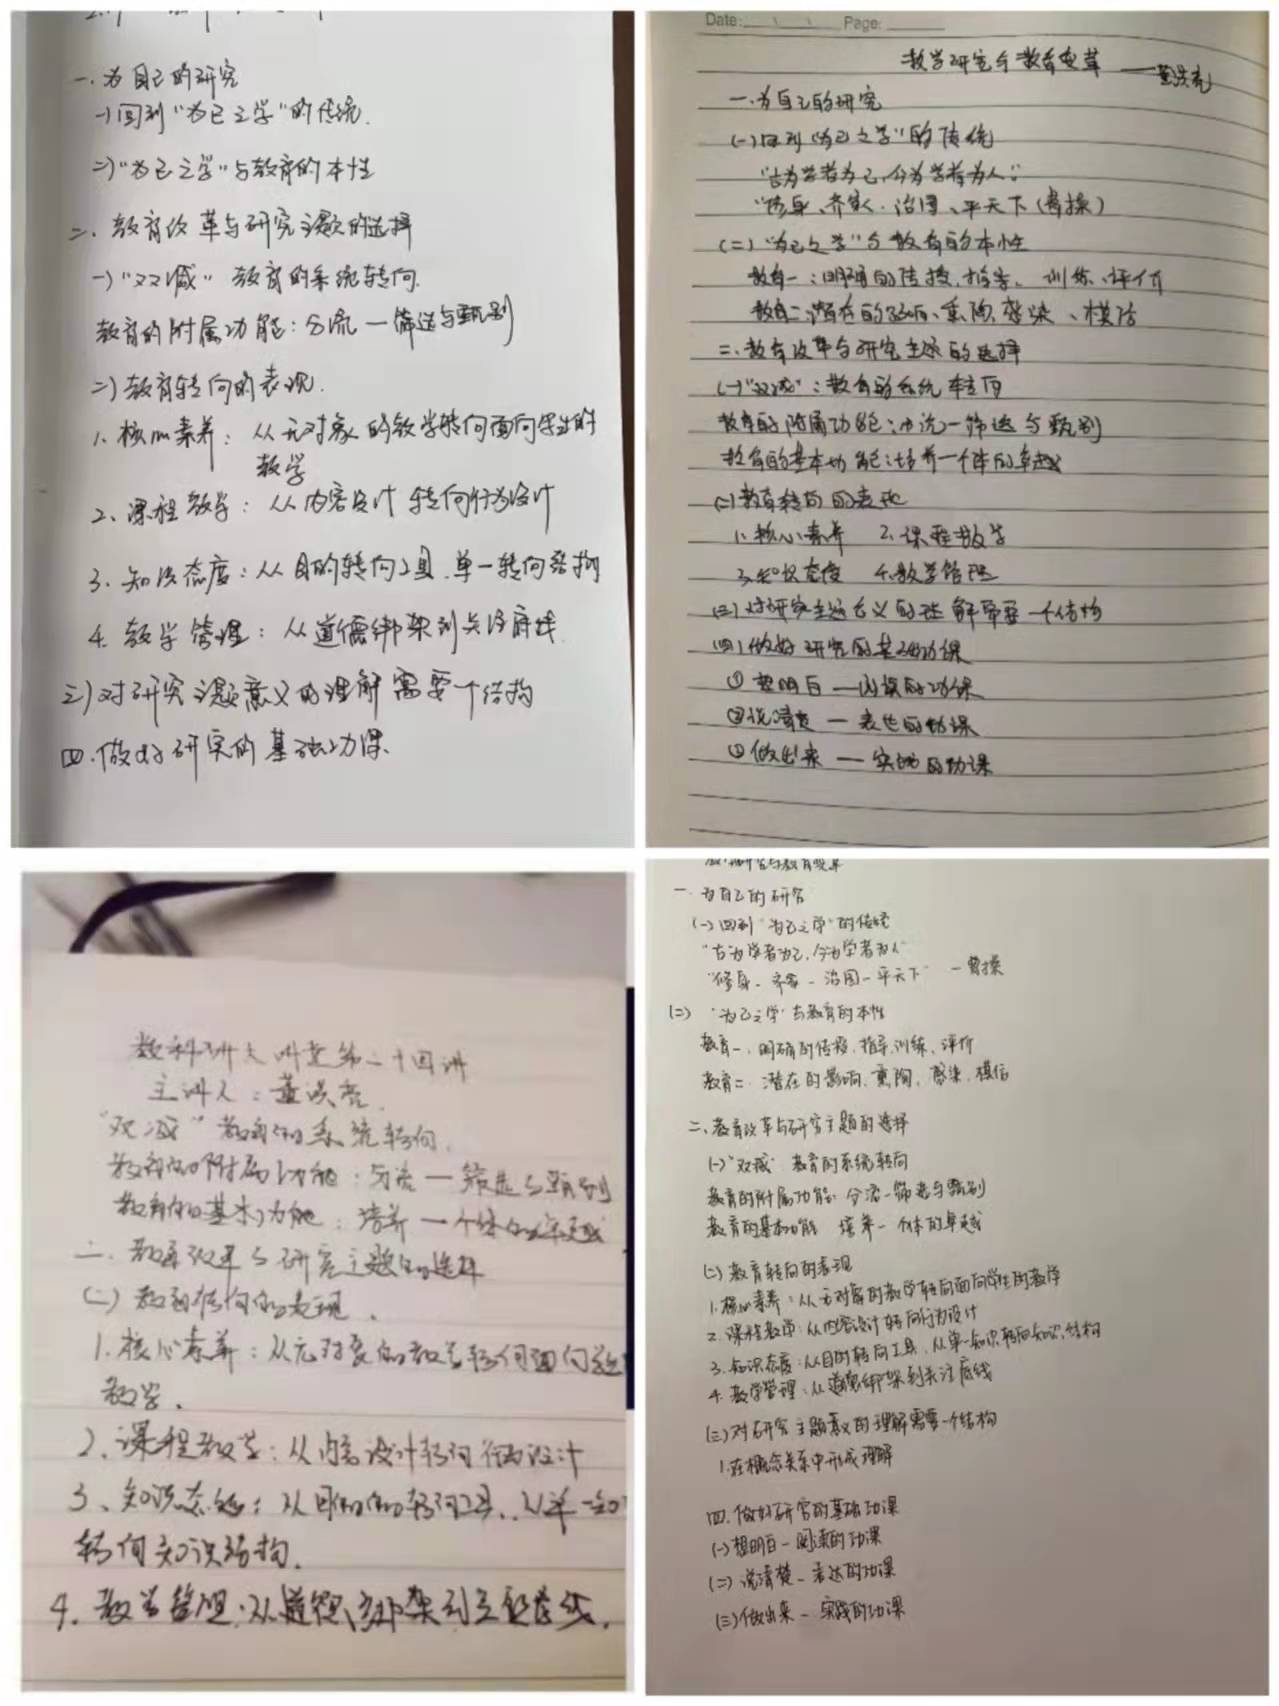 一.为自己的研究
一)回到“为己之学”的传统.
二)“为己之学”与教育的本性
二、教育改革与研究主题的选择
一)“双减” 教育的系统转向.
教育的附属功能：分流一筛选与甄别
二)教育转向的表现.
1.核心素养：从无对象的教学转向面向学生的
教学
2、课程教学：从内容设计转向行为设计
3.知识态度：从目的转向工具.单一转向结构
4.教学管理：从道德绑架到关注底线.
三)对研究主题意义的理解需要一个结构
四.做好研究的基础功课.
Date: Page:
教学研究与教育变革 ——董洪亮
一.为自己的研究
(一)回到“为己之学”的传统
“古为学者为己,今为学者为人”
“修身、齐家、治国、平天下(曹操)
(二)“为己之学”与教育的本性
教育一:明确的传授.指导、训练、评价
教育二:潜在的影响.熏陶.感染、模仿
二.教育改革与研究主题的选择
(一)“双减”：教育的系统转向
教育的附属功能:分流一筛选与甄别
教育的基本功能:培养一个体的卓越
(二)教育转向的表现
1.核心素养 2.课程教学
3.知识态度 4.教学管理
(三)对研究主题意义的理解需要一个结构
(四)做好研究的基础功课
①想明白—阅读的功课
②说清楚—表达的功课
做出来—实践的功课
教科研大讲堂第二十四讲
主讲人：董洪亮.
“双减”教育的系统转向.
教育的附属功能：分流一筛选与甄别
教育的基本功能：培养一个体的卓越
二.教育改革与研究主题的选择
(二)教育转向的表现.
1.核心素养：从无对象的教学转向面向学生
教学.
2.课程教学：从内容设计转向行为设计
3、知识态度：从目的的转向工具.从单一知
转向知识结构.
4.教学管理.从道德绑架到关注底线.
教学研究与教育变革
一.为自己的研究
(一)回到“为己之学”的传统
“古为学者为己,今为学者为人”
“修身-齐家-治国-平天下” —曹操
(二) “为己之学”与教育的本性
教育一、明确的传授.指导.训练、评价
教育二 潜在的影响.熏陶,感染.模仿
二、教育改革与研究主题的选择
(一)“双减” 教育的系统转向
教育的附属功能:分流-筛选与甄别
教育的基本功能 培养-个体的卓越
(二)教育转向的表现
1.核心素养:从无对象的教学转向面向学生的教学
2.课程教学:从内容设计转向行为设计
3.知识态度:从目的转向工具.从单一知识转向知识结构
4.教学管理:从道德绑架到关注底线
(三)对研究主题意义的理解需要一个结构
1.在概念关系中形成理解
四.做好研究的基础功课
(一)想明白-阅读的功课
(二)说清楚-表达的功课
(三)做出来-实践的功课